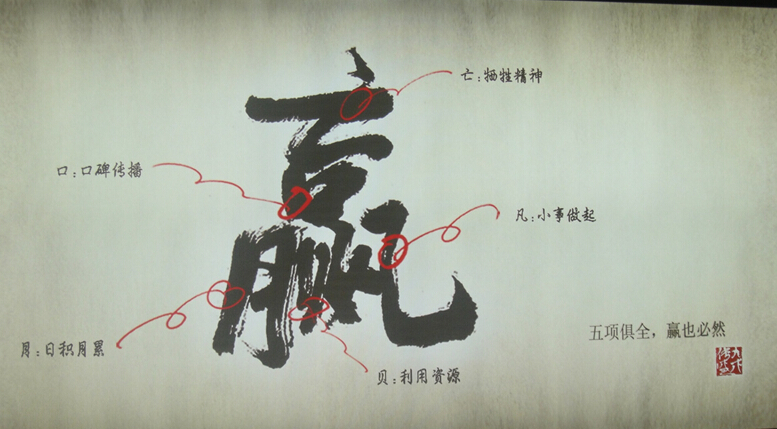 赢
亡:牺牲精神
口:口碑传播
凡:小事做起
月:日积月累
贝:利用资源
五项俱全，赢也必然